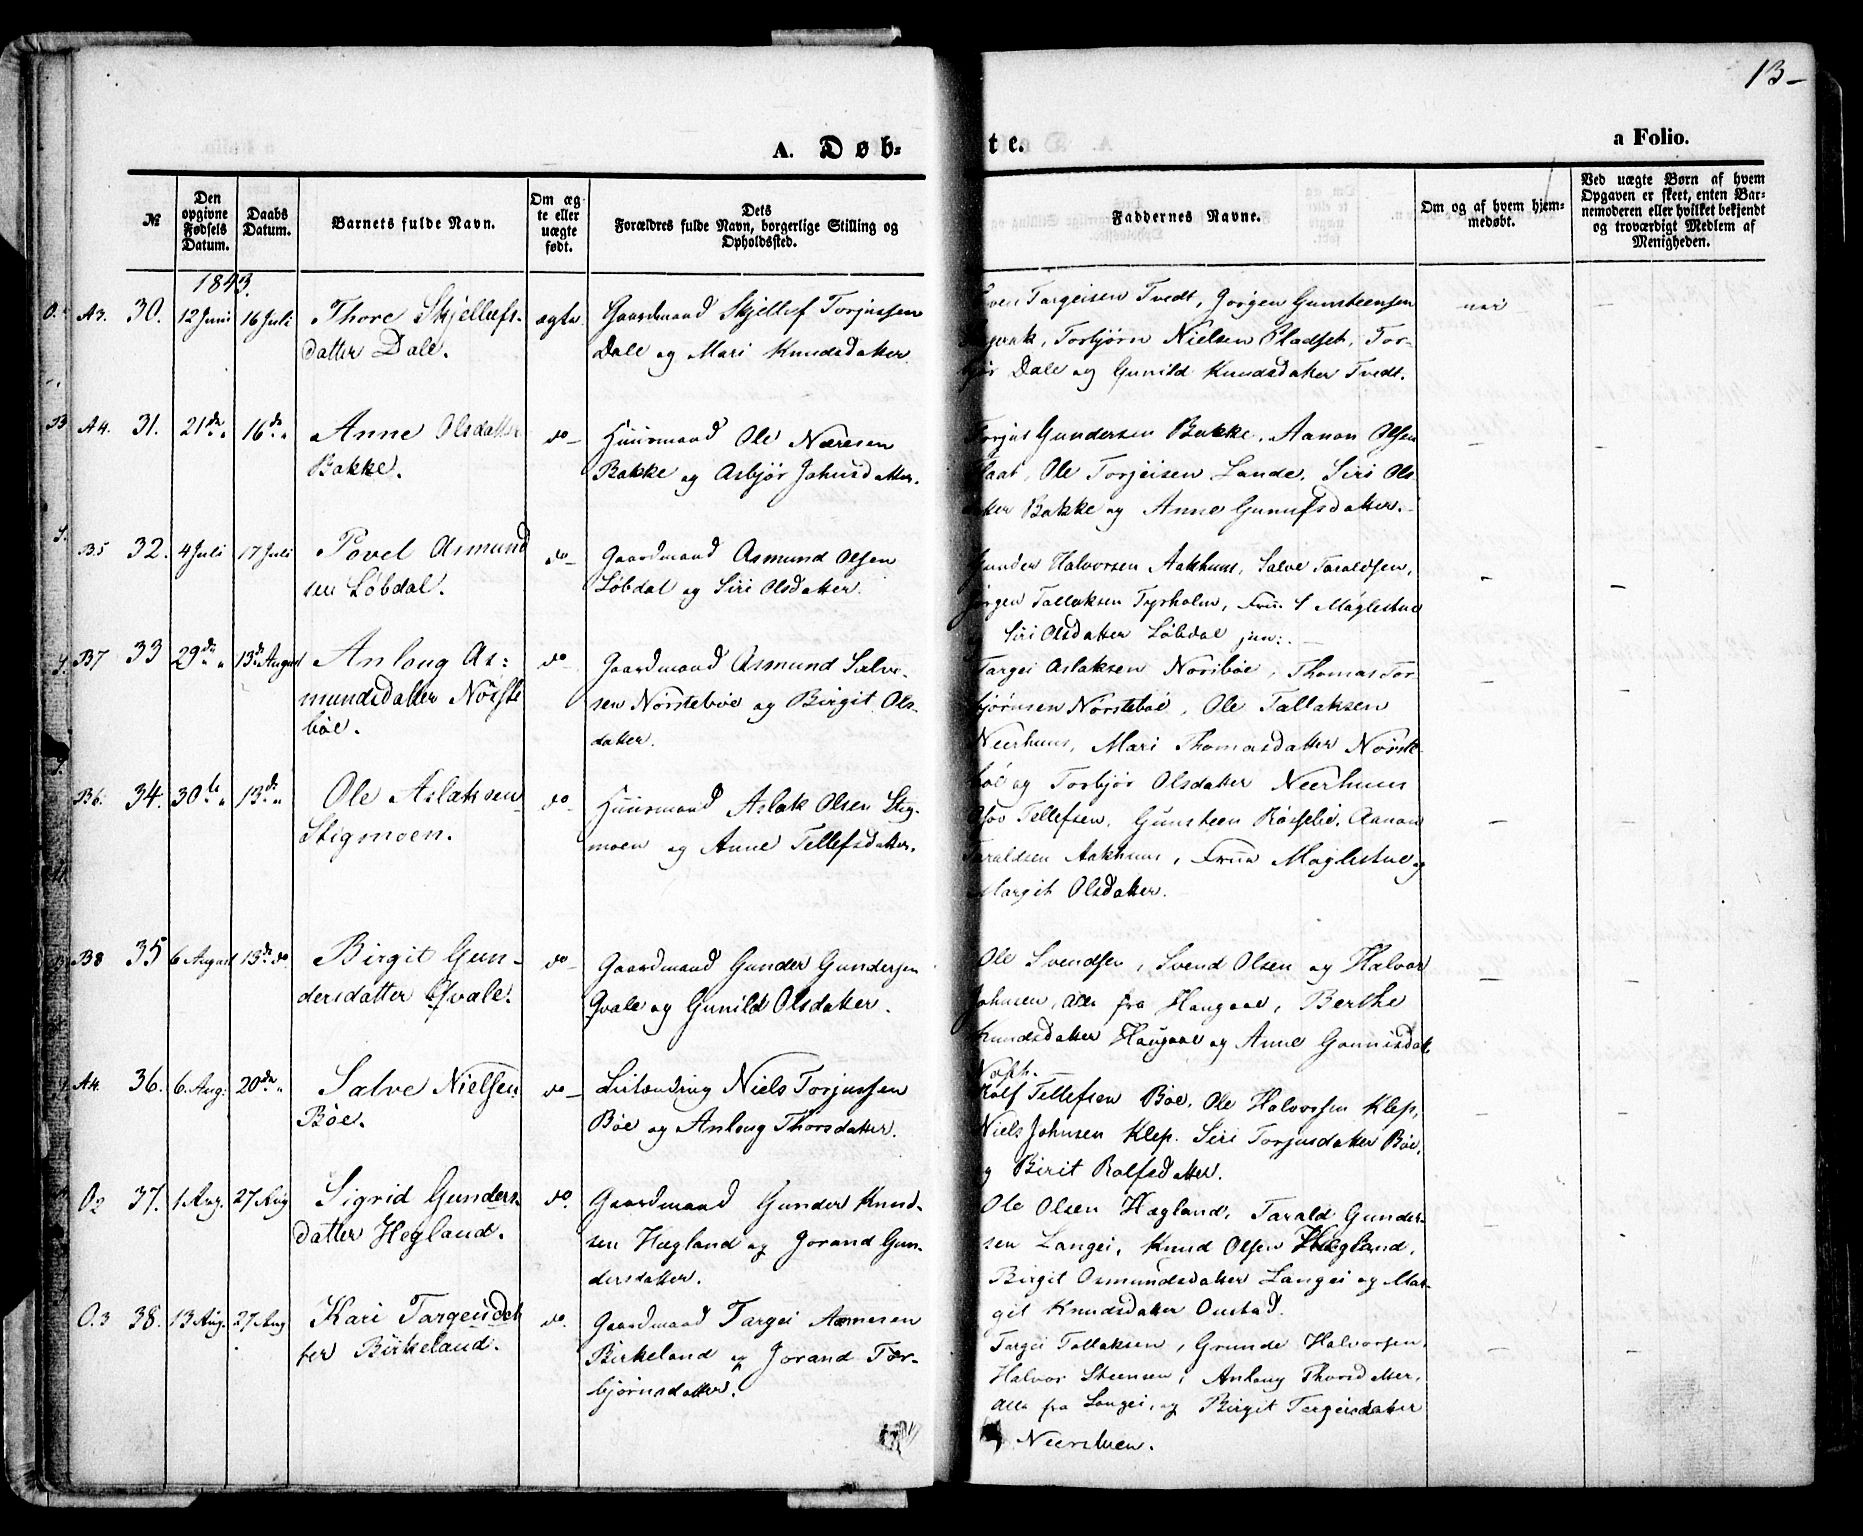 13-
A. Døb-
te.
a Folio.
№
Den opgivne Fødsels Datum.
Daabs Datum.
Barnets fulde Navn.
Om ægte eller uægte født.
Dets Forældres fulde Navn, borgerlige Stilling og Opholdssted.
Faddernes Navne.
Om og af hvem hjemmedøbt.
Ved uægte Børn af hvem Opgaven er skeet, enten Barnemoderen eller hvilket bekjendt og troværdigt Medlem af Menigheden.
1843.
A3. 30. 12 Juni 16 Juli Thore Skjellefs- ægte Gaardmand Skjellef Torjussen
datter Dale. Dale og Mari Knudsdatter.
Targeisen Tvedt, Jørgen Gunsteensen
Torbjørn Nielsen Pladset, Tor-
Dale og Gunild Knudsdatter Tvedt.
A4. 31. 21de " 16de " Anne Olsdatter do- Huusmand Ole
Bakke. Bakke og Asbjør Johnsdatter.
Torjus Gundersen Bakke, Aanon Olsen
Ole Torjeisen Lande, Siri Ols-
datter Bakke og Anne
B5 32. 4 Juli 17 Juli Povel Asmund do- Gaardmand Asmund Olsen
sen Løbdal. Løbdal og Siri Olsdatter.
Gunder Halvorsen Aakhuus, Salve Taraldsen,
Jørgen Tallaksen Tyrholm, Magelstue
Siri Olsdatter Løbdal jun:.
B7 33 29de " 13de August Anlaug As- do- Gaardmand Asmund Salve-
mundsdatter Nørste sen Nørstebøe og Birgit Ols-
bøe. datter.
Targei Aslaksen Thomas Tor
bjørnsen Nørstebøe, Ole Tallaksen
Neerhuus, Mari Thomasdatter Nørste
bøe og Torbjør Olsdatter Neerhuus
B6. 34. 30te " 13de " Ole Aslaksen do- Huusmand Aslak Olsen Stig-
Stigmoen. moen og Anne Tellefsdatter.
Tellefsen, Gunsteen Aanon
Taraldsen Aakhuus, Frue Magelstue og
Margit Olsdatter.
B8 35 6 August 13de do Birgit Gun- do- Gaardmand Gunder Gundersen
dersdatter Qvale. Qvale og Gunild Olsdatter.
Ole Svendsen, Svend Olsen og Halvor
Johnsen, alle fra Haugaae, Berthe
Knudsdatter Haugaae og Anne
A4. 36. 6 Aug: 20de " Salve Nielsen do- Niels Torjussen
Bøe. Bøe og Anlaug Thorsdatter.
Rolf Tellefsen Bøe, Ole Halvorsen Klep,
Niels Johnsen Klep. Siri Torjusdatter Bøe,
og Birit Rolfsdatter.
O2 37. 1 Aug. 27 Aug Sigrid Gunders- do. Gaardmand Gunder Knud-
datter Hegland. sen Hægland og Jorand Gun-
dersdatter.
Ole Olsen Hægland, Tarald Gunder-
sen Langei, Knud Olsen Hægland,
Birgit Osmundsdatter Langei og Mar-
git Knudsdatter Onstad.
O.3 38. 13 Aug. 27 Aug Kari Targeisdat do. Gaardmand Targei Aamesen
ter Birkeland. Birkeland og Jorand Tor-
bjørnsdatter.
Targei Tallaksen, Grunde Halvorsen,
Halvor Steensen, Anlaug Thorsdatter,
alle fra Langei, og Birgit Targeisdatter